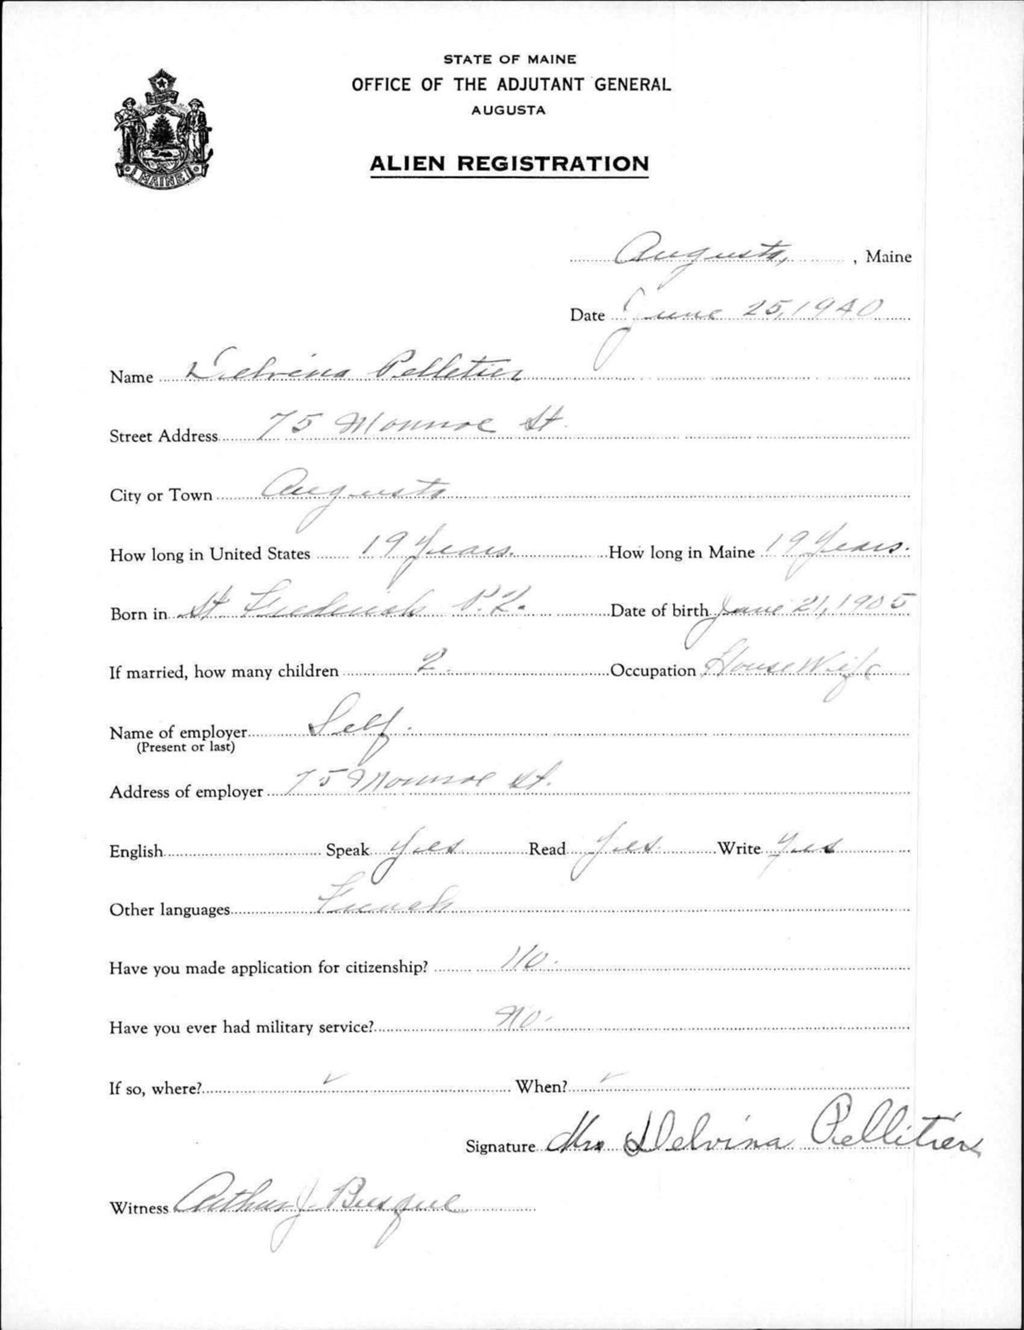 STATE OF MAINE
OFFICE OF THE ADJUTANT GENERAL
AUGUSTA
ALIEN REGISTRATION
MAINE
Augusta, , Maine
Date June 25, 1940
Name Delvina Pelletier
Street Address 75 Monroe St.
City or Town Augusta
How long in United States 19 Years. How long in Maine 19 Years.
Born in St. Frederick P.Q. Date of birth June 21, 1905
If married, how many children 2. Occupation House Wife
Name of employer Self.
(Present or last)
Address of employer 75 Monroe St.
English Speak Yes Read Yes. Write Yes
Other languages French
Have you made application for citizenship? No.
Have you ever had military service? No.
If so, where? ✓ When? ✓
Signature Mrs Delvina Pelletier
Witness Arthur J. Busque